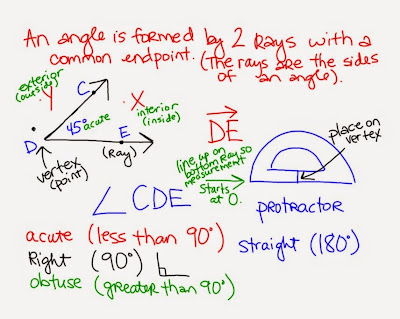 An angle is formed by 2 Rays with a
common endpoint. (The rays are the sides
of an angle).
exterior
(outside)
Y
C
X
interior
(inside)
45° acute
D
E
(Ray)
vertex
(point)
DE
line up on
bottom Ray so
measurement
starts
at 0.
place on
vertex
PROTRACTOR
∠CDE
acute (less than 90°)
Right (90°)
obtuse (greater than 90°)
straight (180°)